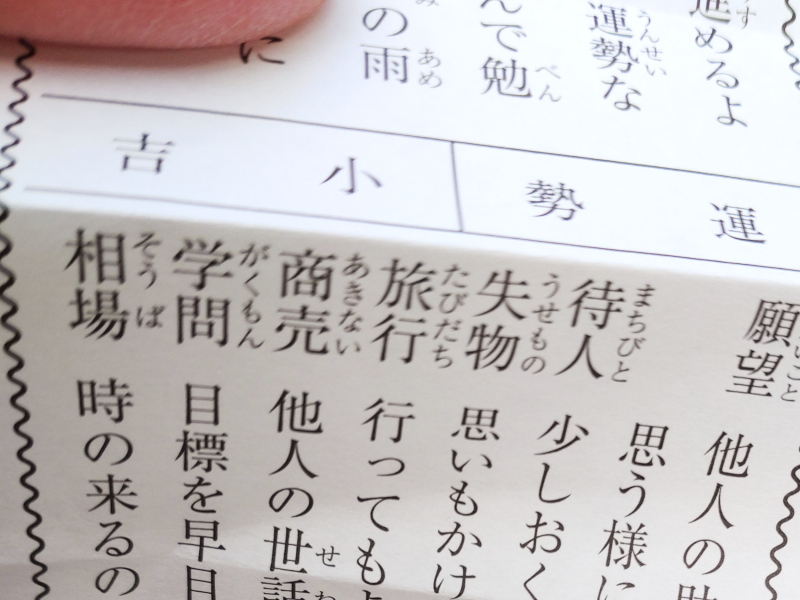 めるよ
運勢な
んで勉
の雨
に
運勢
小吉
願望 他人の
思う様に
待人 少しおく
失物 思いもかけ
旅行 行っても
商売 他人の世話
学問 目標を早目
相場 時の来るの